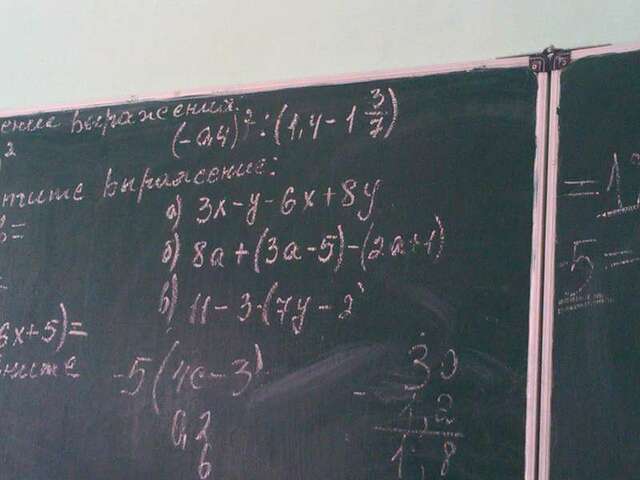 ение выражения.
(-2,4)² : (1,4 - 1 3/7)
выражение:
а) 3x - y - 6x + 8y
б) 8a + (3a - 5) - (2a + 1)
в) 11 - 3 · (7y - 2
6x + 5) =
-5 (4c - 3)
3,0
- 1,2
1,8
0,2
6
= 1
-5 =